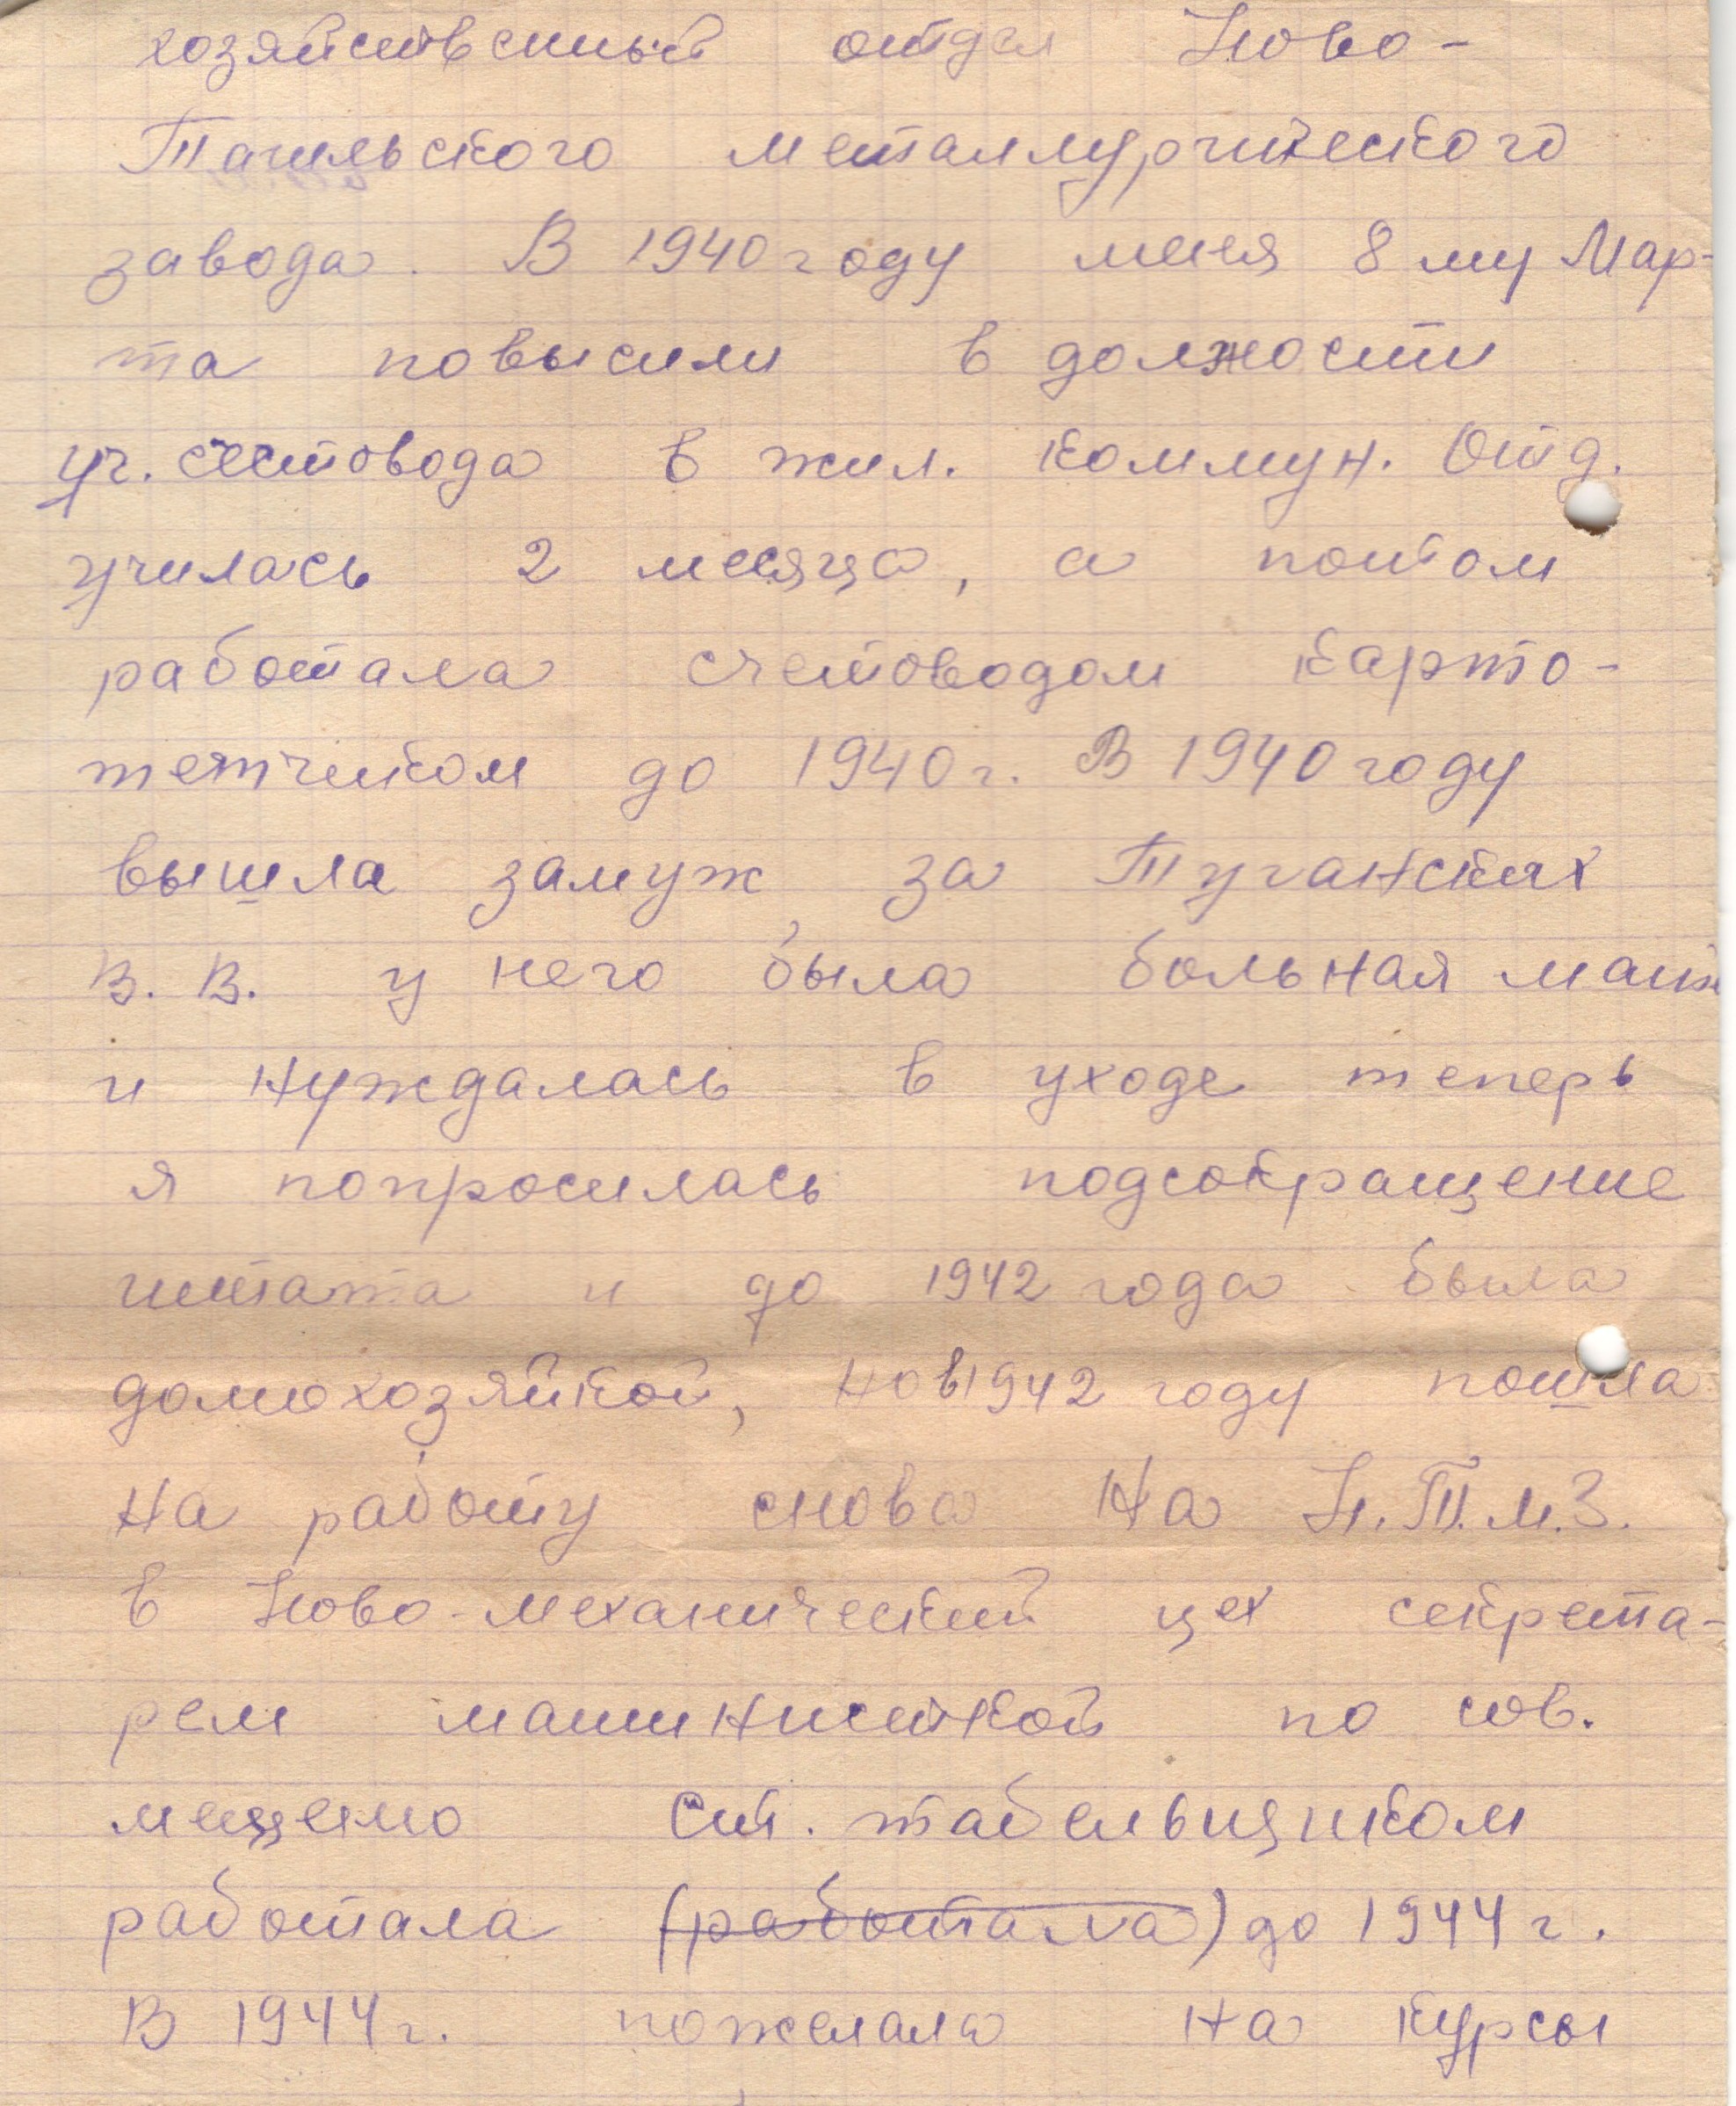 хозяйственный отдел Ново-
Тагильского металлургического
завода. В 1940 году меня 8 му Мар-
та повысили в должности
уч. счетовода в жил. коммун. Отд.
училась 2 месяца, а потом
работала счетоводом карто-
тетчиком до 1940 г. В 1940 году
вышла замуж за Туганских
В. В. у него была больная мать
и нуждалась в уходе теперь
я попросилась подсокращение
штата и до 1942 года была
домохозяйкой, но в 1942 году пошла
на работу снова на Н.Т.М.З.
в Ново-механический цех секрета-
рем машинисткой по сов.
мещено ст. табельщиком
работала (работала) до 1944 г.
В 1944 г. пожелала на курсы